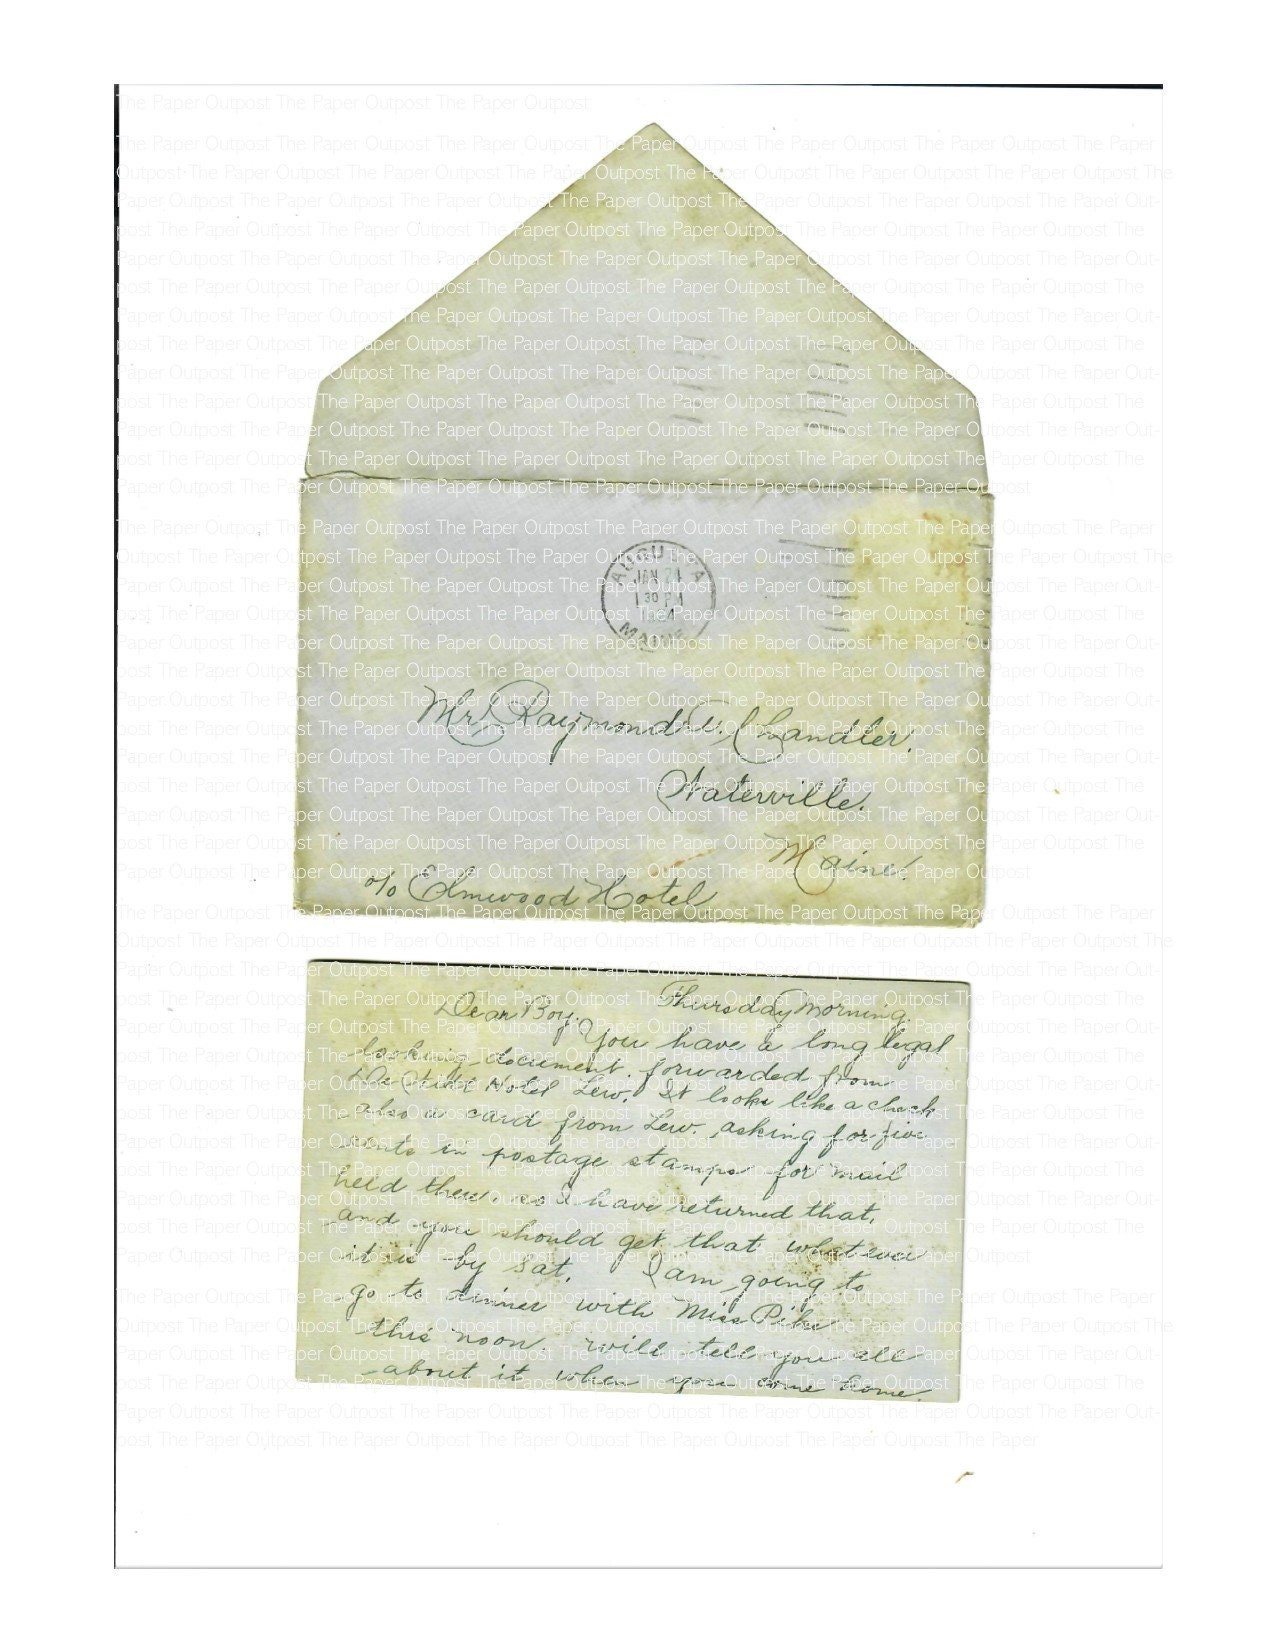 The Paper Outpost The Paper Outpost The Paper Outpost
AUGUSTA
JAN 21
30 P
MAINE
Mr. Raymond E. Chandler.
Waterville.
Maine.
c/o Elmwood Hotel
Thursday Morning.
Dear Boy.
You have a long legal
looking document forwarded from
DeWitt Hotel Lew. It looks like a check
also a card from Lew. asking for five
cents in postage stamps for mail
held there so I have returned that,
and you should get that whatever
it is by Sat. I am going to
go to dinner with Miss Pike
this noon. will tell you all
about it when you come home.